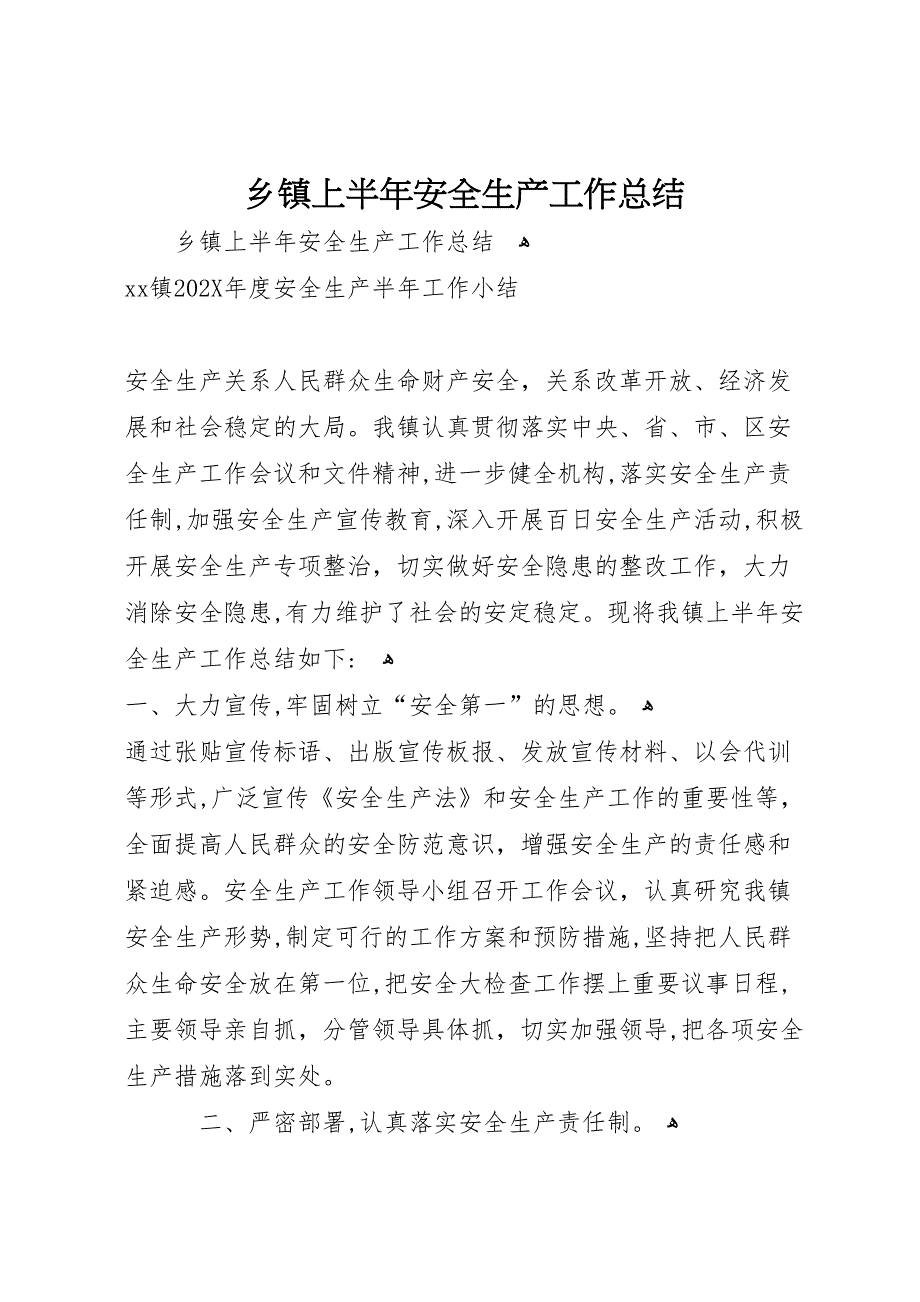 乡镇上半年安全生产工作总结
乡镇上半年安全生产工作总结 ﻫ
xx镇202X年度安全生产半年工作小结
安全生产关系人民群众生命财产安全，关系改革开放、经济发
展和社会稳定的大局。我镇认真贯彻落实中央、省、市、区安
全生产工作会议和文件精神,进一步健全机构,落实安全生产责
任制,加强安全生产宣传教育,深入开展百日安全生产活动,积极
开展安全生产专项整治，切实做好安全隐患的整改工作，大力
消除安全隐患,有力维护了社会的安定稳定。现将我镇上半年安
全生产工作总结如下: ﻫ
一、大力宣传,牢固树立“安全第一”的思想。 ﻫ
通过张贴宣传标语、出版宣传板报、发放宣传材料、以会代训
等形式,广泛宣传《安全生产法》和安全生产工作的重要性等，
全面提高人民群众的安全防范意识，增强安全生产的责任感和
紧迫感。安全生产工作领导小组召开工作会议，认真研究我镇
安全生产形势,制定可行的工作方案和预防措施,坚持把人民群
众生命安全放在第一位,把安全大检查工作摆上重要议事日程,
主要领导亲自抓，分管领导具体抓，切实加强领导,把各项安全
生产措施落到实处。
二、严密部署,认真落实安全生产责任制。 ﻫ